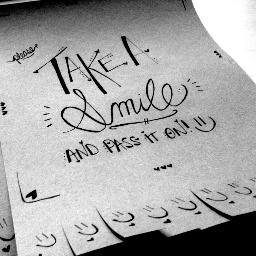 please
TAKE A
Smile
AND PASS IT ON!